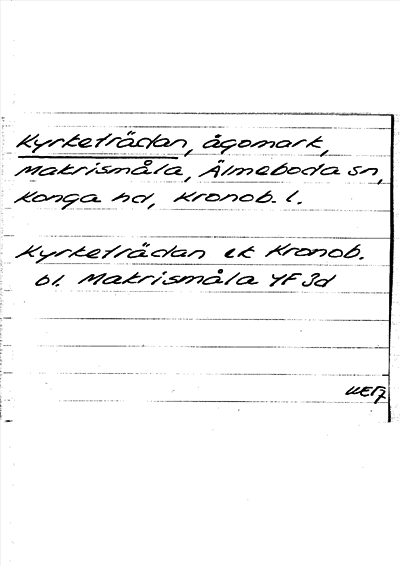 Kyrketrädan, ågomark,
Makrismåla, Älmeboda sn,
Konga hd, Kronob. l.
Kyrketrädan ek Kronob.
bl. Makrismåla YF 3d